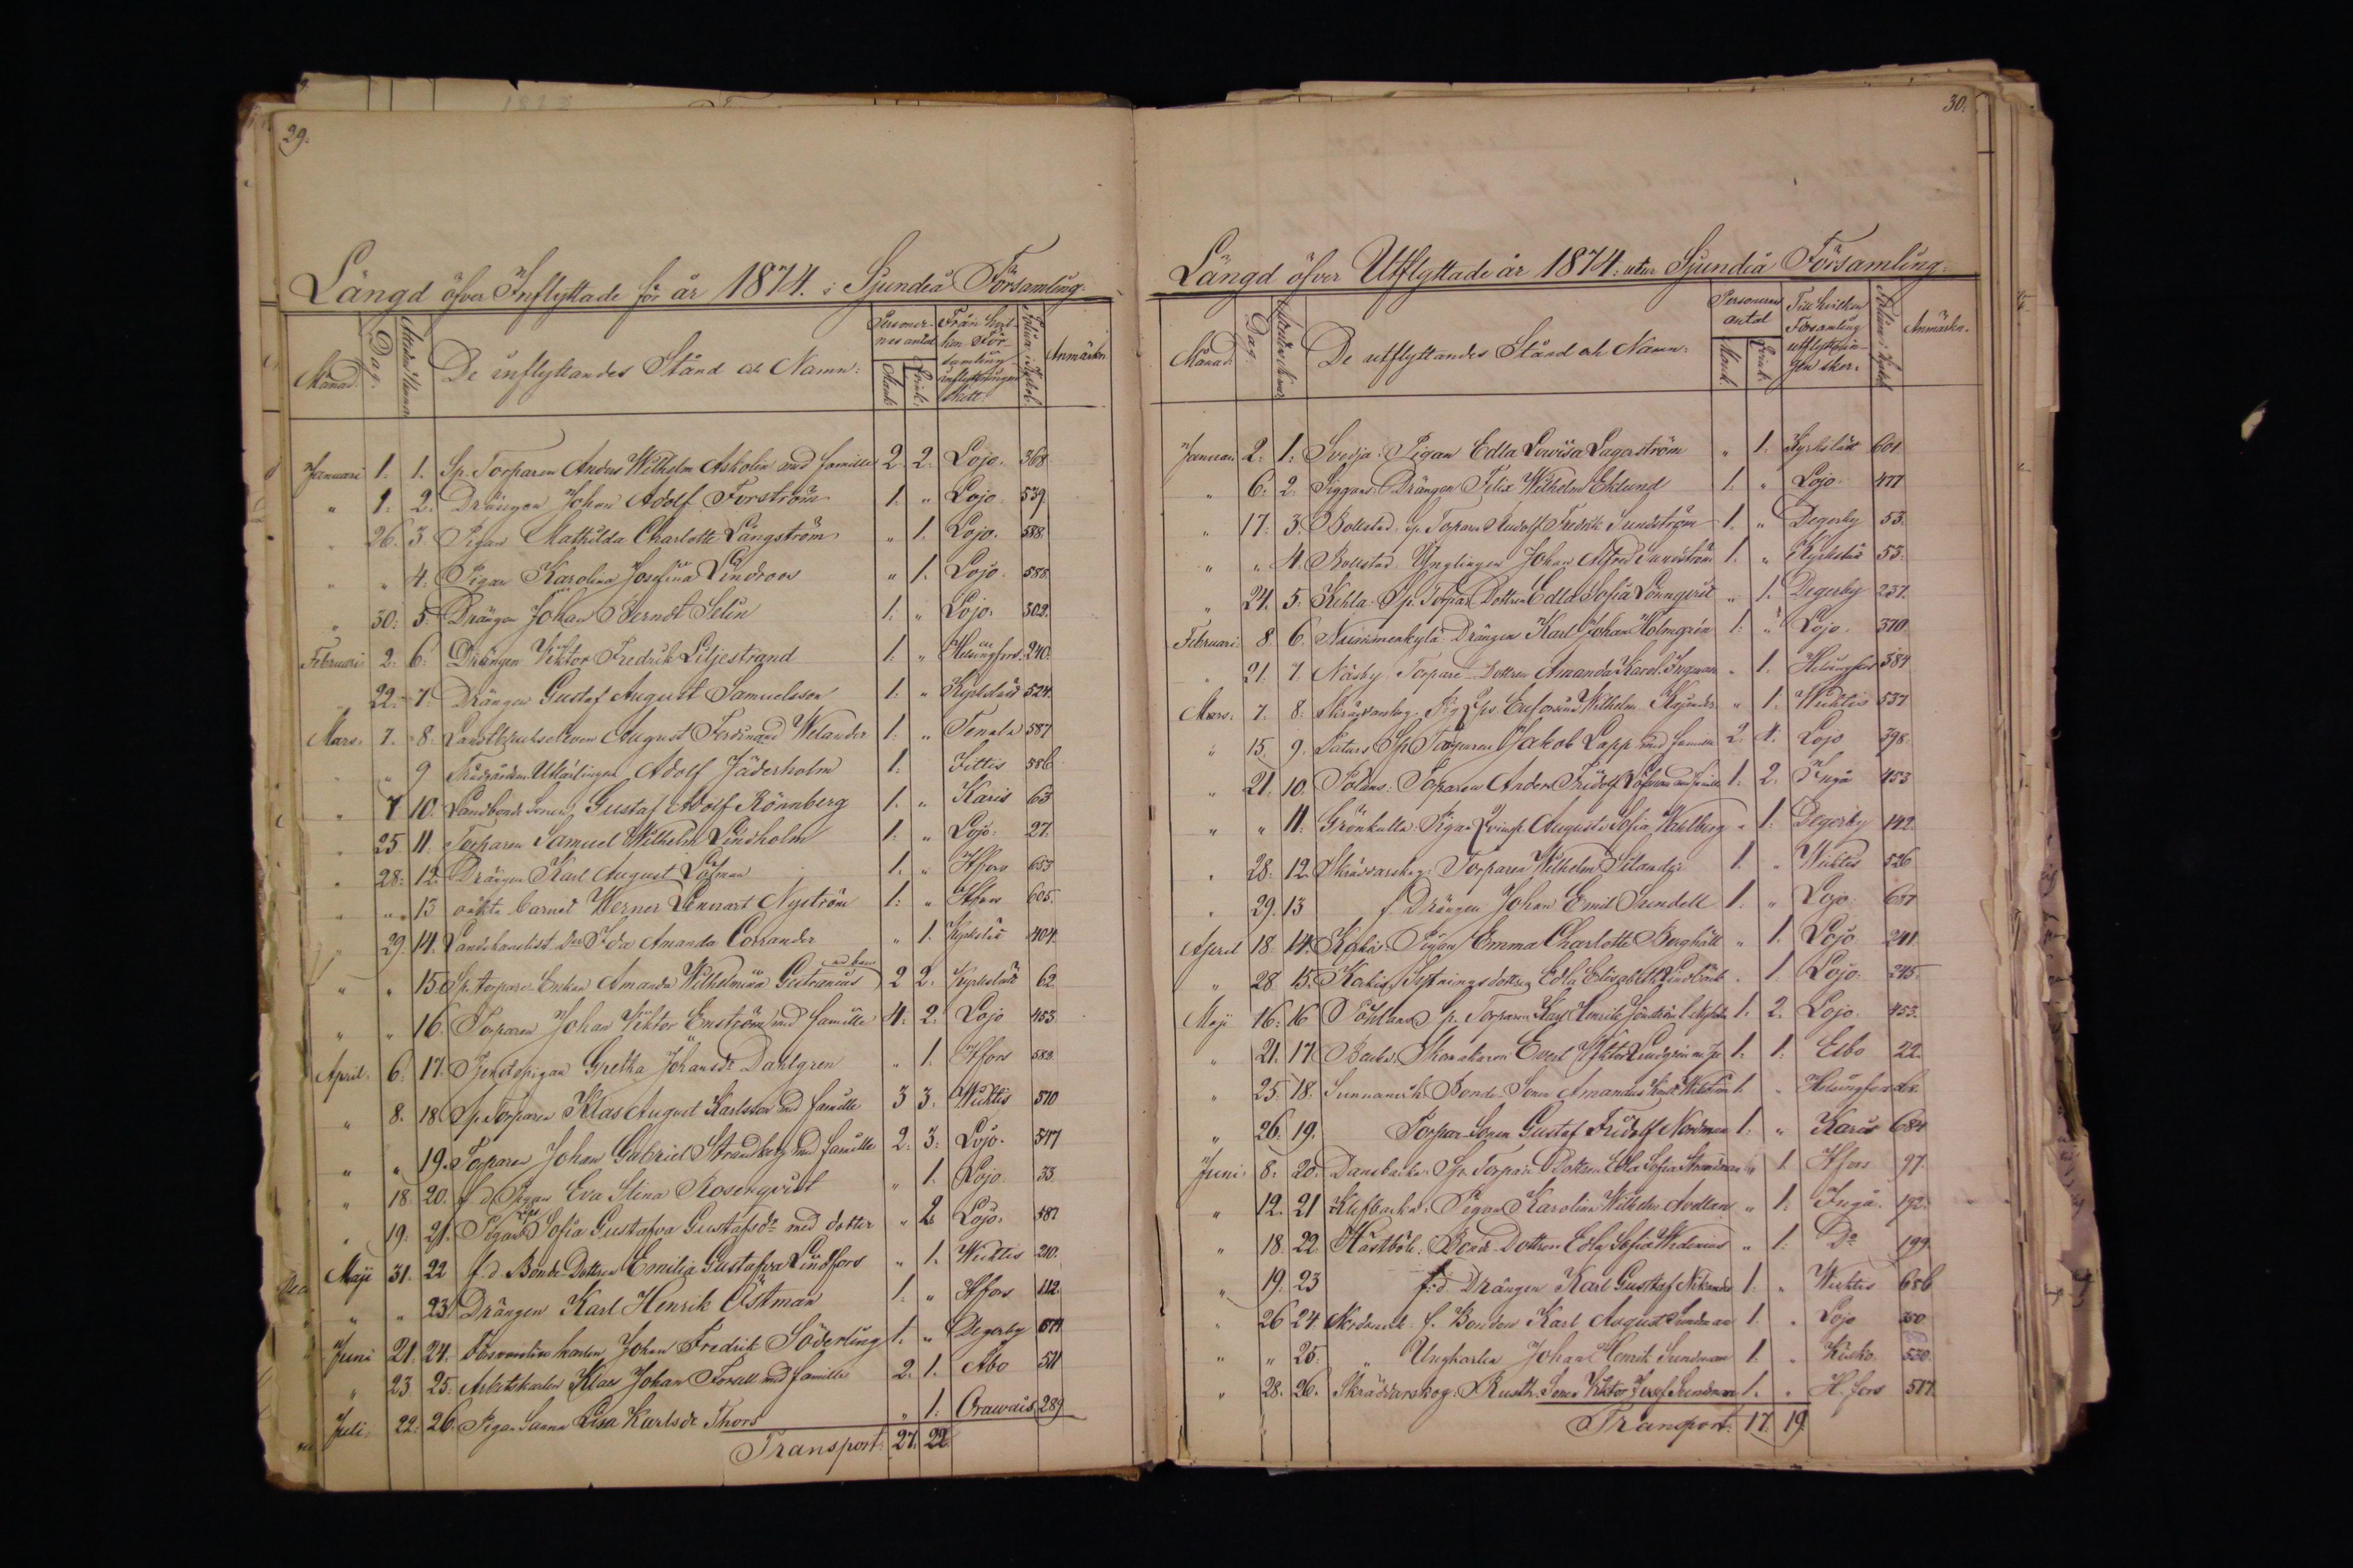 29.
Längd öfver Inflyttade för år 1874. i Sjundeå Församling.
Månad. Dag. De inflyttandes Stånd och Namn: Personer-nes antal Mank. Qvink. Från hvilken Församling inflyttningen skett. Anmärkn.
Januari 1. 1. Sp. Torparen Anders Wilhelm Asholin med familie 2. 2. Lojo. 368
" 1. 2. Drängen Johan Adolf Forström 1. " Lojo. 539
" 26. 3. Pigan Mathilda Charlotte Långström " 1. Lojo. 588
" " 4. Pigan Karolina Josefina Lindroos " 1. Lojo. 588
" 30. 5. Drängen Johan Berndt Selin 1. " Lojo. 302.
Februari 2. 6. Drängen Viktor Fredrik Liljestrand 1. " Helsingfors 240.
" 22. 7. Drängen Gustaf August Samuelsson 1. " Kyrkslätt 524
Mars. 7. 8. August Ferdinand Welander 1. " Tenala 587
" " 9 Adolf Jäderholm 1. Sittis 586
" 7 10. Landbonde Sonen Gustaf Adolf Rönnberg 1. " Karis 63
" 25 11. Torparen Samuel Wilhelm Lindholm 1. " Lojo. 27.
" 28. 12. Drängen Karl August Löfman 1. " Hfors 653
" " 13 oäkta barnet Werner Lennart Nyström 1. " Hfors 605.
" 29. 14. Ida Amanda Corrander " 1. Kyrkslätt 404.
" " 15. Sp. Torpare Enkan Amanda Wilhelmina med barn 2 2. Kyrkslätt 62
" " 16. Torparen Johan Viktor Enström med familie 4. 2. Lojo 453
April. 6. 17. Tjenstepigan Gretha Johansdr Dahlgren " 1. Hfors 582
" 8. 18 Sp. Torparen Klas August Karlsson med familie 3 3. Wichtis 510
" " 19. Torparen Johan Gabriel Strandberg med familie 2. 3. Lojo. 547
" 18. 20. f.d. Pigan Eva Stina Rosenqvist " 1. Lojo. 33
" 19. 21. Pigan Lps Sofia Gustafva Gustafsdr med dotter " 2. Lojo. 587
Maji 31. 22 f.d. Bonde Dottren Emilia Gustafva Lindfors " 1. Wichtis 210.
" " 23. Drängen Karl Henrik Östman 1. " Hfors 112
Juni 21. 24. Johan Fredrik Söderling 1. " Degerby
" 23 25. Arbetskarlen Klas Johan Forsell med familie 2. 1. Åbo 511
Juli. 22. 26. Pigan Sanna Lisa Karlsdr Thors " 1. Orawais 289
Transport. 27. 22
30.
Längd öfver Utflyttade år 1874. utur Sjundeå Församling.
Månad. Dag. De utflyttandes Stånd och Namn. Personernes antal Mank. Qvink. Till hvilken Församling utflyttningen sker. Anmärkn.
Januari 2. 1. Svedja: Pigan Edla Lovisa Lagerström " 1. Kyrkslätt 601
" 6. 2. Siggans: Drängen Felix Wilhelm Eklund 1. " Lojo. 477
" 17. 3. Bollstad. Sp. Torparen Rudolf Fredrik Sundström 1. " Degerby 53.
" " 4. Bollstad. Ynglingen Johan Alfred Sundström 1. " Kyrkslätt 53.
" 24. 5. Kehla. Sp. Torpare Dottren Edla Sofia Lönnqvist " 1. Degerby 237.
Februari 8 6. Drängen Karl Johan Holmgrén 1. " Lojo. 370.
" 21. 7. Näsby. Torpare Dottren Amanda Karol. Ingman " 1. Helsingfors 384
Mars. 7. 8. Wilhelm. " 1. Wichtis 537
" 15 9. Sp. Torparen Jakob Lapp med familie 2. 4. Lojo 398
" 21. 10. Torparen Anders Fridolf Löfman med familie 1. 2. Ingå 453
" " 11. Grönkulla. Pigan Augusta Sofia Wahlberg " 1. Degerby 142
" 28. 12. Skräddarskog. Torparen Wilhelm Silander 1. " Wichtis 526
" 29. 13 f. Drängen Johan Emil Sundell 1. " Lojo. 687
April 18 14. Pigan Emma Charlotta Berghäll " 1. Lojo 241
" 28 15. Edla Elisabeth Lindbäck " 1. Lojo. 245.
Maji 16. 16 Sp. Torparen Karl Henrik 1. 2. Lojo. 453.
" 21. 17. Skomakaren Evert Viktor Lindgren 1. 1. Esbo 22.
" 25. 18. Bonde Sonen Amandus 1. " Helsingfors
" 26. 19. Torpar Sonen Gustaf Fridolf Nordman 1. " Karis 684
Juni. 8. 20. Dansbacka. Sp. Torpare Dottren Edla Sofia " 1. Hfors 97.
" 12. 21 Klefbacka. Pigan Karolina Wilhelm. " 1. Ingå. 192.
" 18. 22. Hästböle: Bonde Dottren Edla Sofia " 1. Do 199.
" 19. 23 f.d. Drängen Karl Gustaf 1. " Wichtis 686
" 26 24. f. Bonden Karl August Sundman 1. " Lojo 350
" " 25. " Ungkarlen Johan Henrik Sundman 1. " Kisko. 530.
" 28. 26. Skräddarskog. Rusth. Sonen Viktor Josef Sundman 1. " H. fors 517.
Transport. 17. 19.